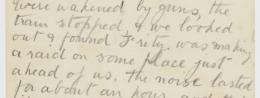 were wakened by guns, the
train stopped, & we looked
out & found Fritz was making
a raid on some place just
ahead of us. The noise lasted
for about an hour and the